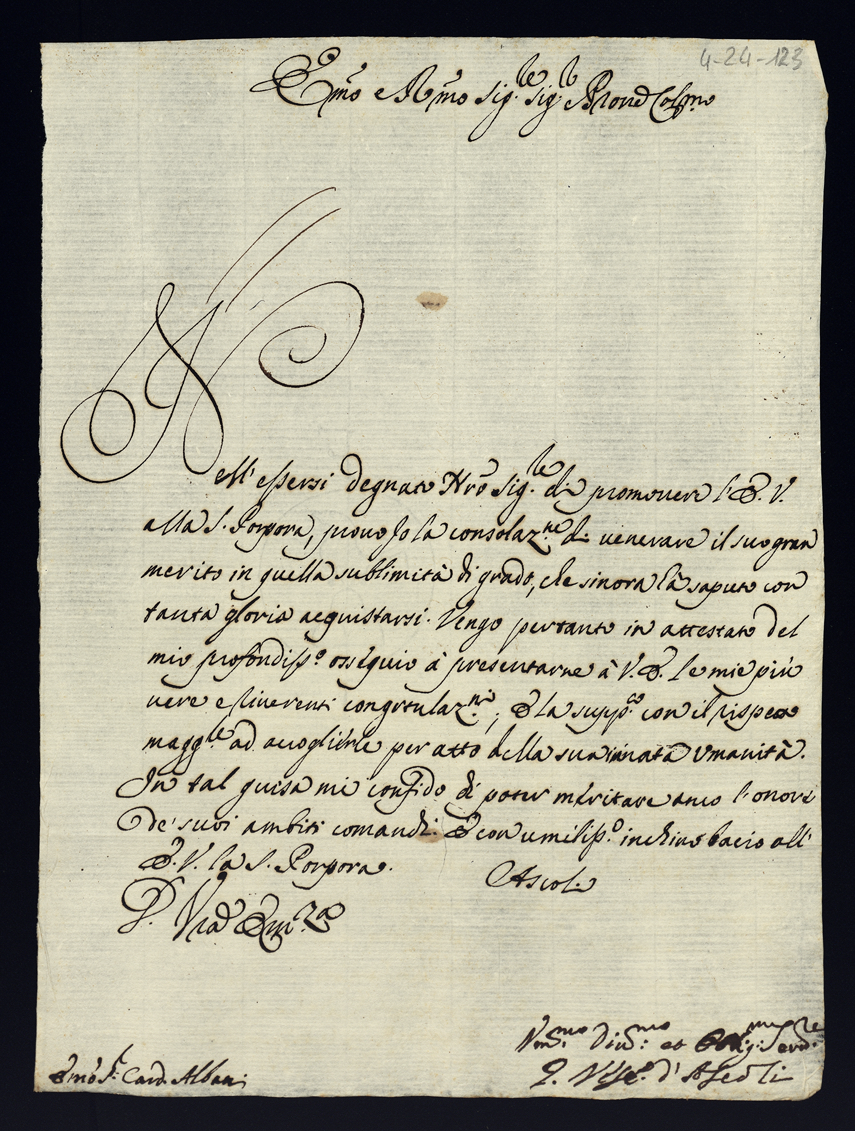 4-24-123
Emo e Rmo Sig.re Sig.r Pnone Colmo
Nell'essersi degnato Nro Sig.re di promovere l'E. V.
alla S. Porpora, provo Io la consolaz.ne di venerare il suo gran
merito in quella sublimità di grado, che sinora hà saputo con
tanta gloria acquistarsi. Vengo pertanto in attestato del
mio profondiss.o ossequio à presentarne à V. E. le mie più
vere e riverenti congrtulaz.ni, E la supp.co con il rispetto
magg.re ad accoglierle per atto della sua innata Umanità.
In tal guisa mi confido di poter meritare anco l'onore
de' suoi ambiti comandi. E con umiliss.o inchino bacio all'
E. V. la S. Porpora.
Ascoli
D. Vra Emza
Vmo Divmo et Obligmo Serre
Vesc.o d'Ascoli
Emo S.r Card. Albani